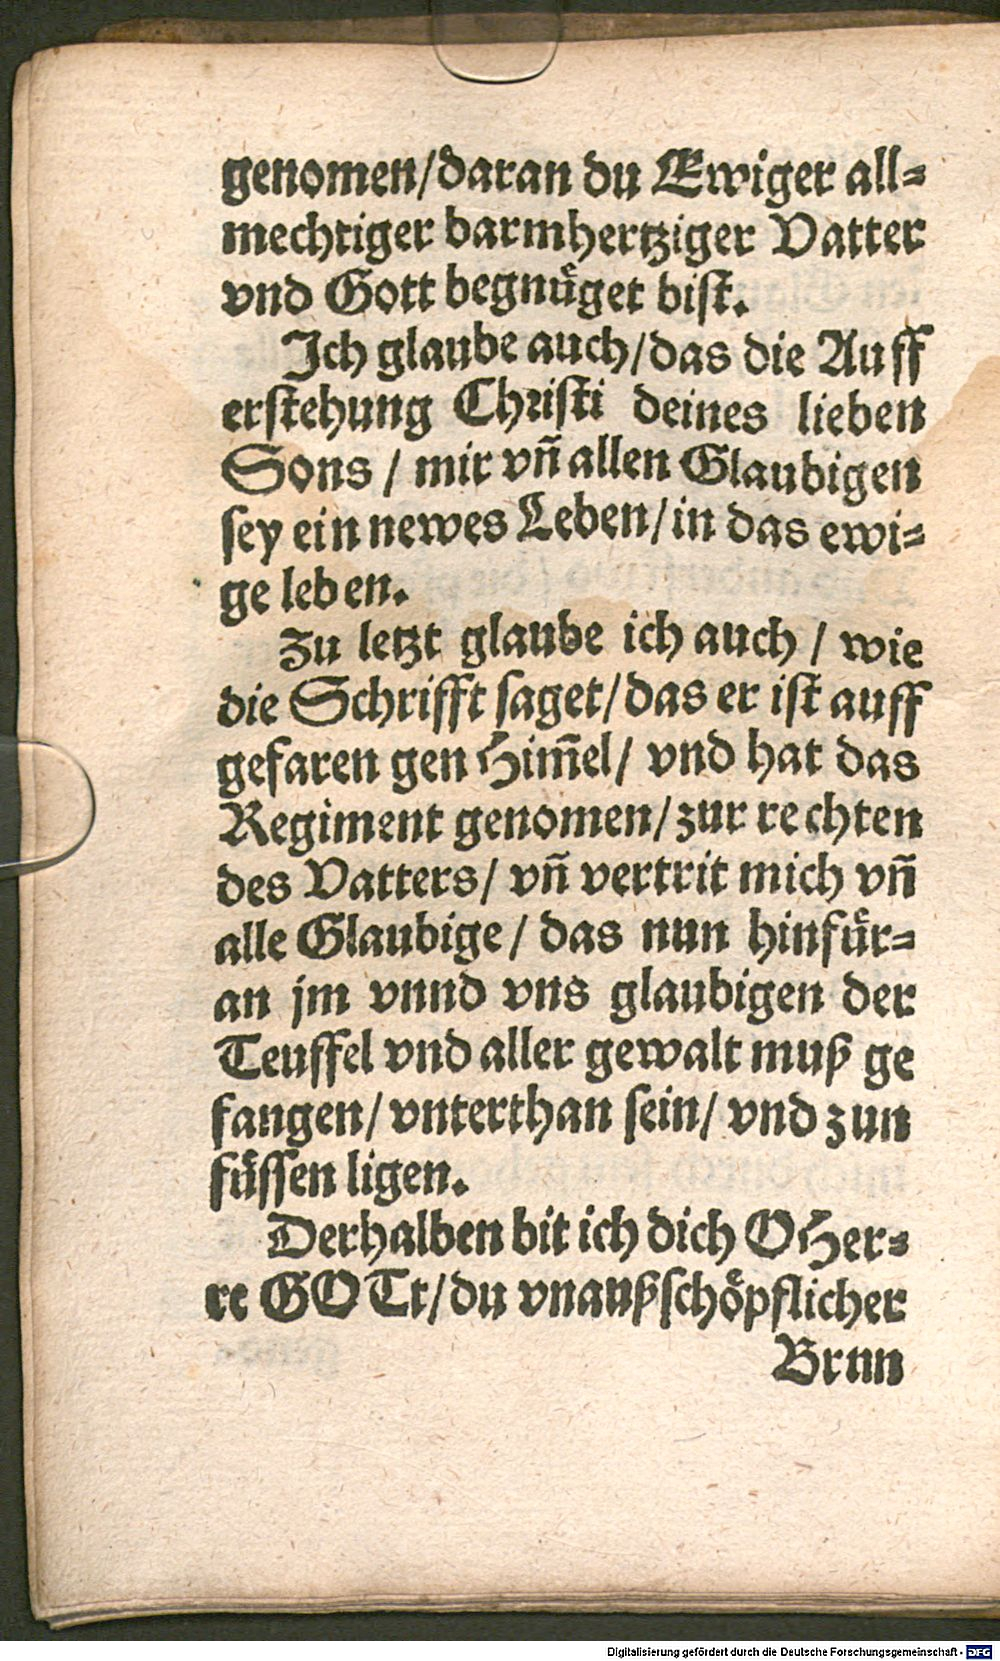 genomen/daran du Ewiger all-
mechtiger barmhertziger Vatter
vnd Gott begnuͤget bist.
Ich glaube auch/das die Auff
erstehung Christi deines lieben
Sons / mir vñ allen Glaubigen
sey ein newes Leben/in das ewi-
ge leben.
Zu letzt glaube ich auch / wie
die Schrifft saget/das er ist auff
gefaren gen Him̃el/ vnd hat das
Regiment genomen/zur rechten
des Vatters/ vñ vertrit mich vñ
alle Glaubige / das nun hinfuͤr-
an jm vnnd vns glaubigen der
Teuffel vnd aller gewalt muß ge
fangen/vnterthan sein/ vnd zun
fuͤssen ligen.
Derhalben bit ich dich O Her-
re GOTt/du vnaußschoͤpflicher
Brnn
Digitalisierung gefördert durch die Deutsche Forschungsgemeinschaft - DFG